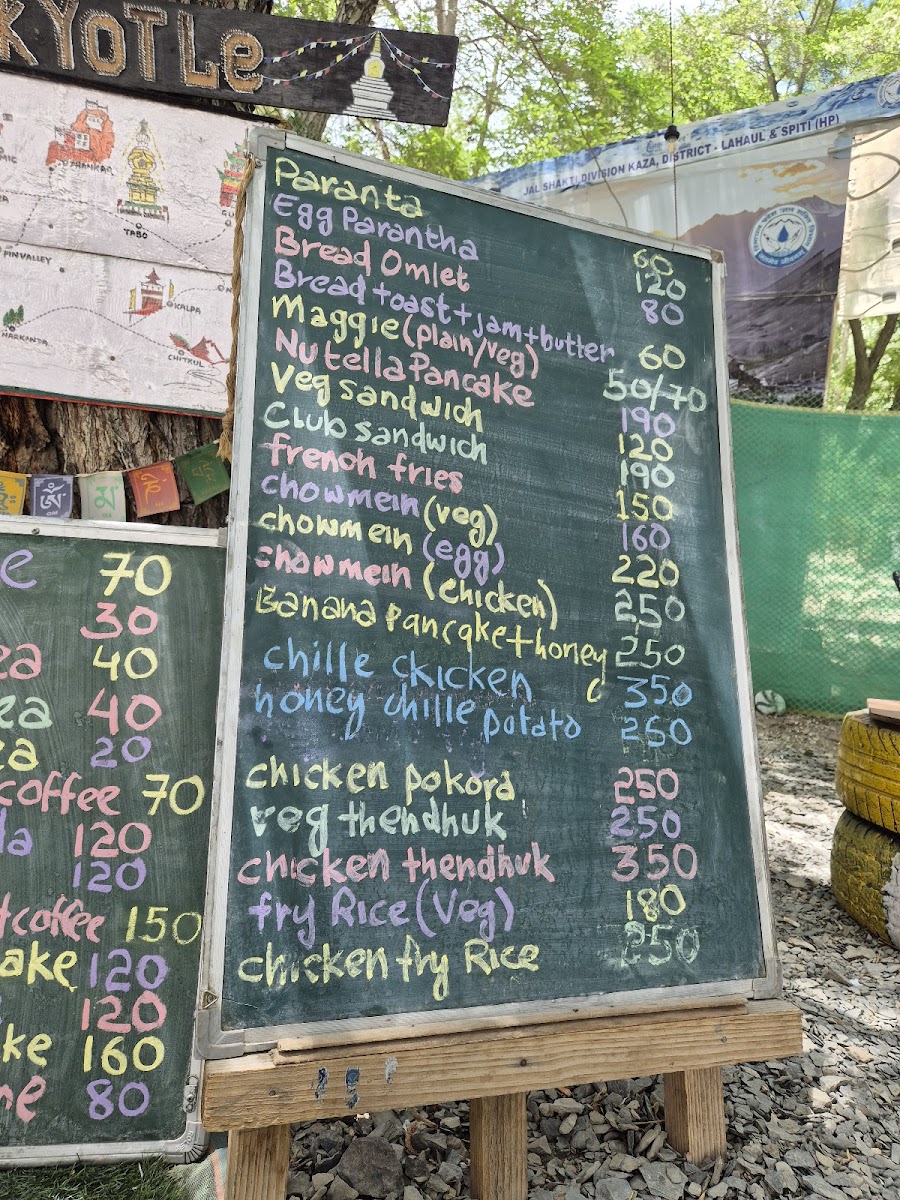 KYOTLe
ZHANKAR
TABO
PIN VALLEY
KALPA
NARKANDA
CHITKUL
JAL SHAKTI DIVISION KAZA, DISTRICT - LAHAUL & SPITI (HP)
Paranta 60
Egg Parantha 120
Bread Omlet 80
Bread toast+jam+butter 60
Maggie(plain/veg) 50/70
Nutella Pancake 190
Veg sandwich 120
Club sandwich 190
french fries 150
chowmein (veg) 160
chowmein (egg) 220
chowmein (chicken) 250
Banana Pancake+honey 250
chille ckicken 350
honey chille potato 250
chicken pokora 250
veg thendhuk 250
chicken thendhuk 350
fry Rice (Veg) 180
chicken fry Rice 250
e 70
30
ea 40
ea 40
a 20
coffee 70
la 120
120
tcoffee 150
ake 120
120
ke 160
ne 80